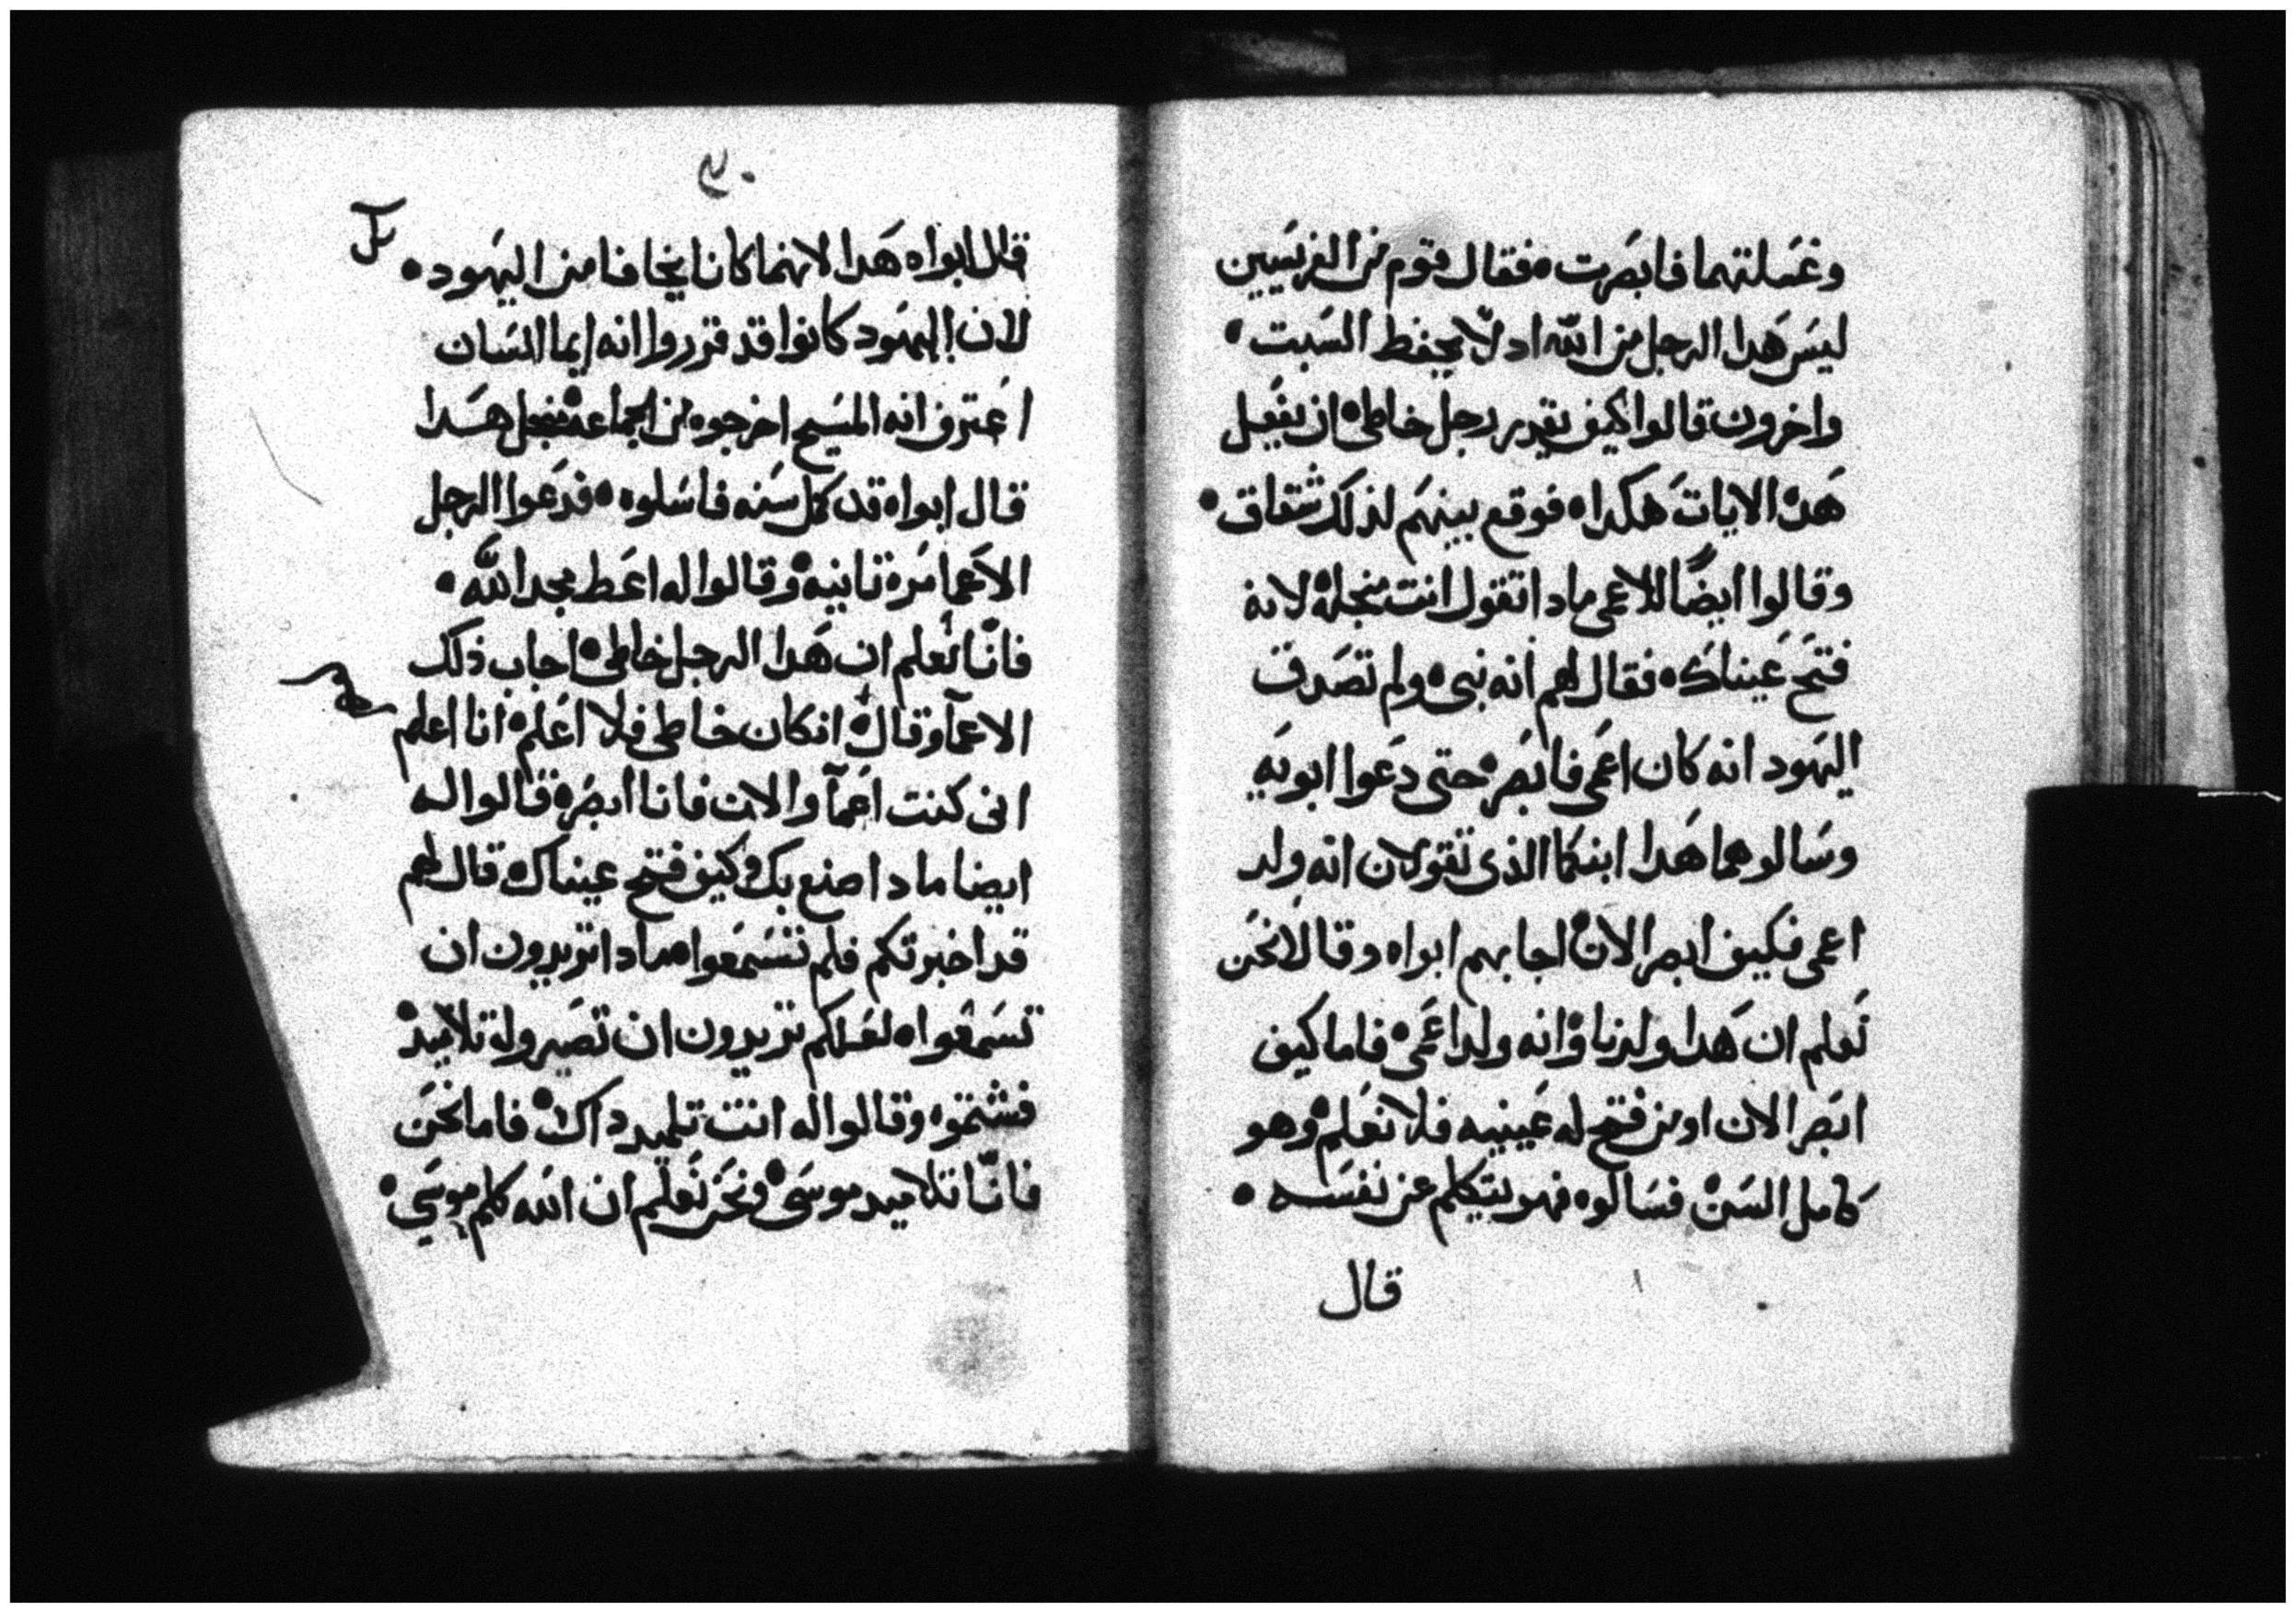 وغسَلتهما فابصَرت • فقال قوم من الفريسَيين
ليسَ هَدا الرجل من اللّه اد لّا يحفط السَبت •
واخرون قالوا كيف يقدر رجل خاطى • ان يفعَل
هَده الايات هَكدا • فوقع بينهَم لذلَك شقاق •
وقالوا ايضًا للاعمى مادا تقول انت من اجله لانه
فتَح عَيناك • فقال لهم انه نبى • ولم تصَدق
اليهَود انه كان اعَمى فابصَر • حتى دعَوا ابويَه
وسَالوهما هَدا ابنكما الذى تقولان انه ولد
اعمى فكيف ابصر الان • اجابهم ابواه وقالا نحَن
نَعلم ان هَدا ولدنا • وانه ولد اعَمى • فاما كيف
ابصَر الان او من فتح له عَينيه فلا نعَلم • وهو
كامل السَن • فسَالوه فهو يتكلم عن نفسَه •
قال
قال ابواه هَدا لانهما كانا يخافا من اليهَود •
لان اليهَود كانوا قد قرروا انه ايما انسَان
اعَترف انه المسَيح اخرجوه من الجماعة • فمن اجل هَدا
قال ابواه قد كمل سَنه فاسَلوه • فدعَوا الرجل
الاعَما مَرة تانية • وقالوا له اعَط مجدا للّه •
فانّا نَعلم ان هَدا الرجل خاطى • اجاب ذلك
الاعمآ وقال • ان كان خاطى فلا اعَلم • انا اعلم
انى كنت اعَمآ والان فانا ابصَر • قالوا له
ايضا مادا صنع بك • وكيف فتح عيناك • قال لهم
قد اخبرتكم فلم تسَمعَوا • مادا تريدون ان
تسَمعَوا • لعَلكم تريدون ان تصَيروا له تلاميد •
فشتموه وقالوا له انت تلميد داك • فاما نحَن
فانّا تلاميد موسَى • ونحَن نَعلم ان اللّه كلم موسَى •